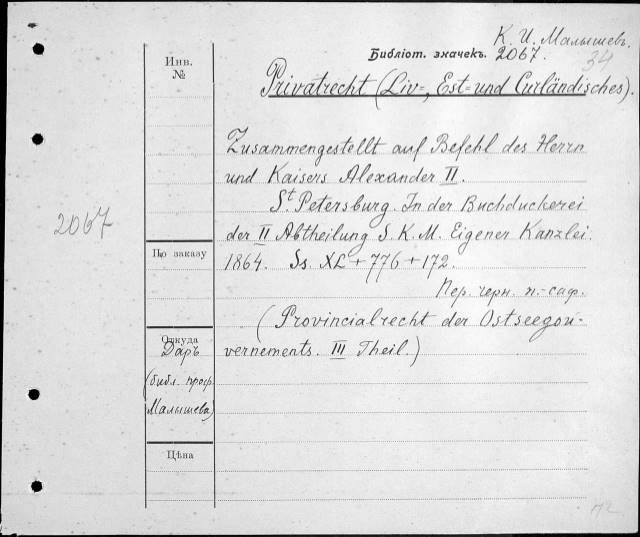 К. И. Малышевъ.
Библіот. значекъ. 2067.
34
Инв.
№
Privatrecht (Liv=, Est= und Curländisches).
Zusammengestellt auf Befehl des Herrn
und Kaisers Alexander II.
St. Petersburg. In der Buchduckerei
2067
der II Abtheilung S. K. M. Eigener Kanzlei.
По заказу
1864. Ss. XL + 776 + 172.
Пер. черн. п.-саф.
(Provincialrecht der Ostseegou-
Откуда
Даръ
vernements. III Theil.)
(библ. проф.
Малышева)
Цѣна